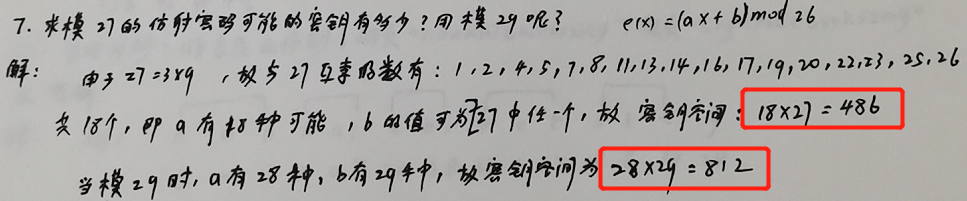 7. 求模27的仿射密码可能的密钥有多少？用模29呢？ e(x)=(ax+b)mod 26
解： 由于27=3×9，故与27互素的数有：1,2,4,5,7,8,11,13,14,16,17,19,20,22,23,25,26
共18个，即a有18种可能，b的值可为Z27中任一个，故密钥空间：18×27=486
当模29时，a有28种，b有29种，故密钥空间为28×29=812